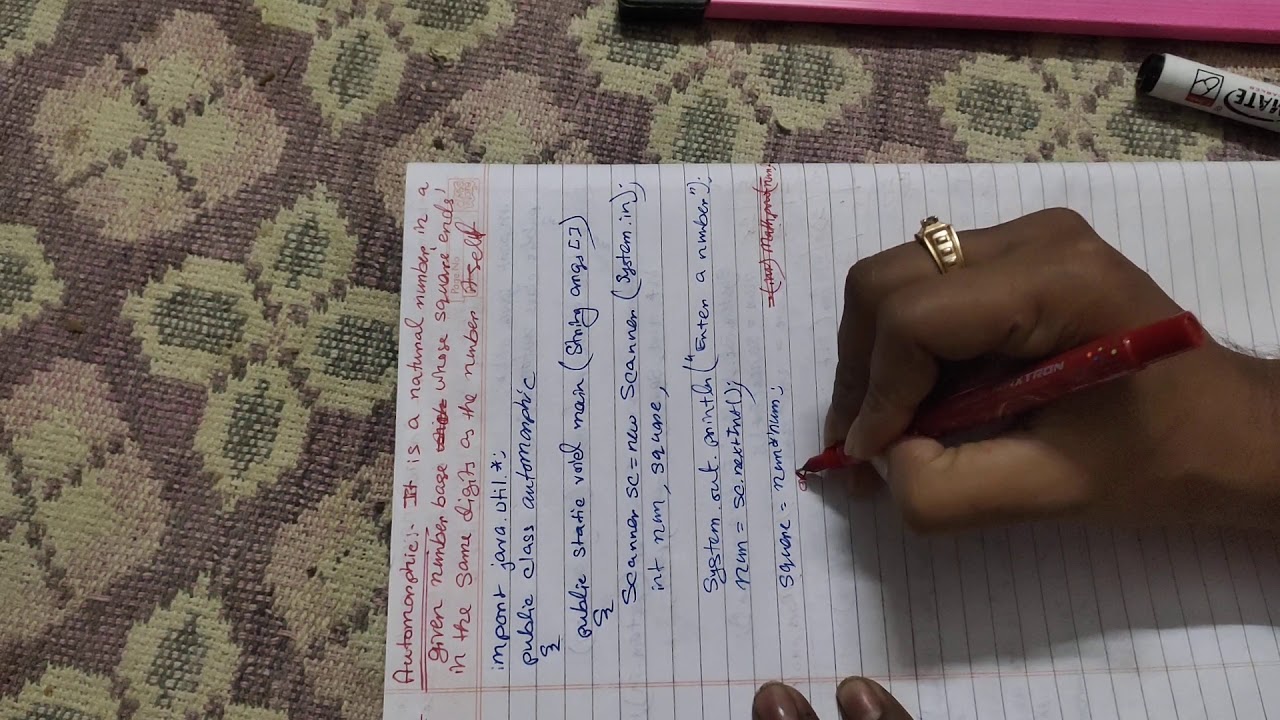 Automorphic:- It is a natural number in a
given number base whose square ends,
in the same digits as the number itself
Page No
import java.util.*;
public class automorphic
{
public static void main (String args[])
{
Scanner sc=new Scanner (System.in);
int num, square,
System.out.println("Enter a number");
num = sc.nextInt();
square = num*num;